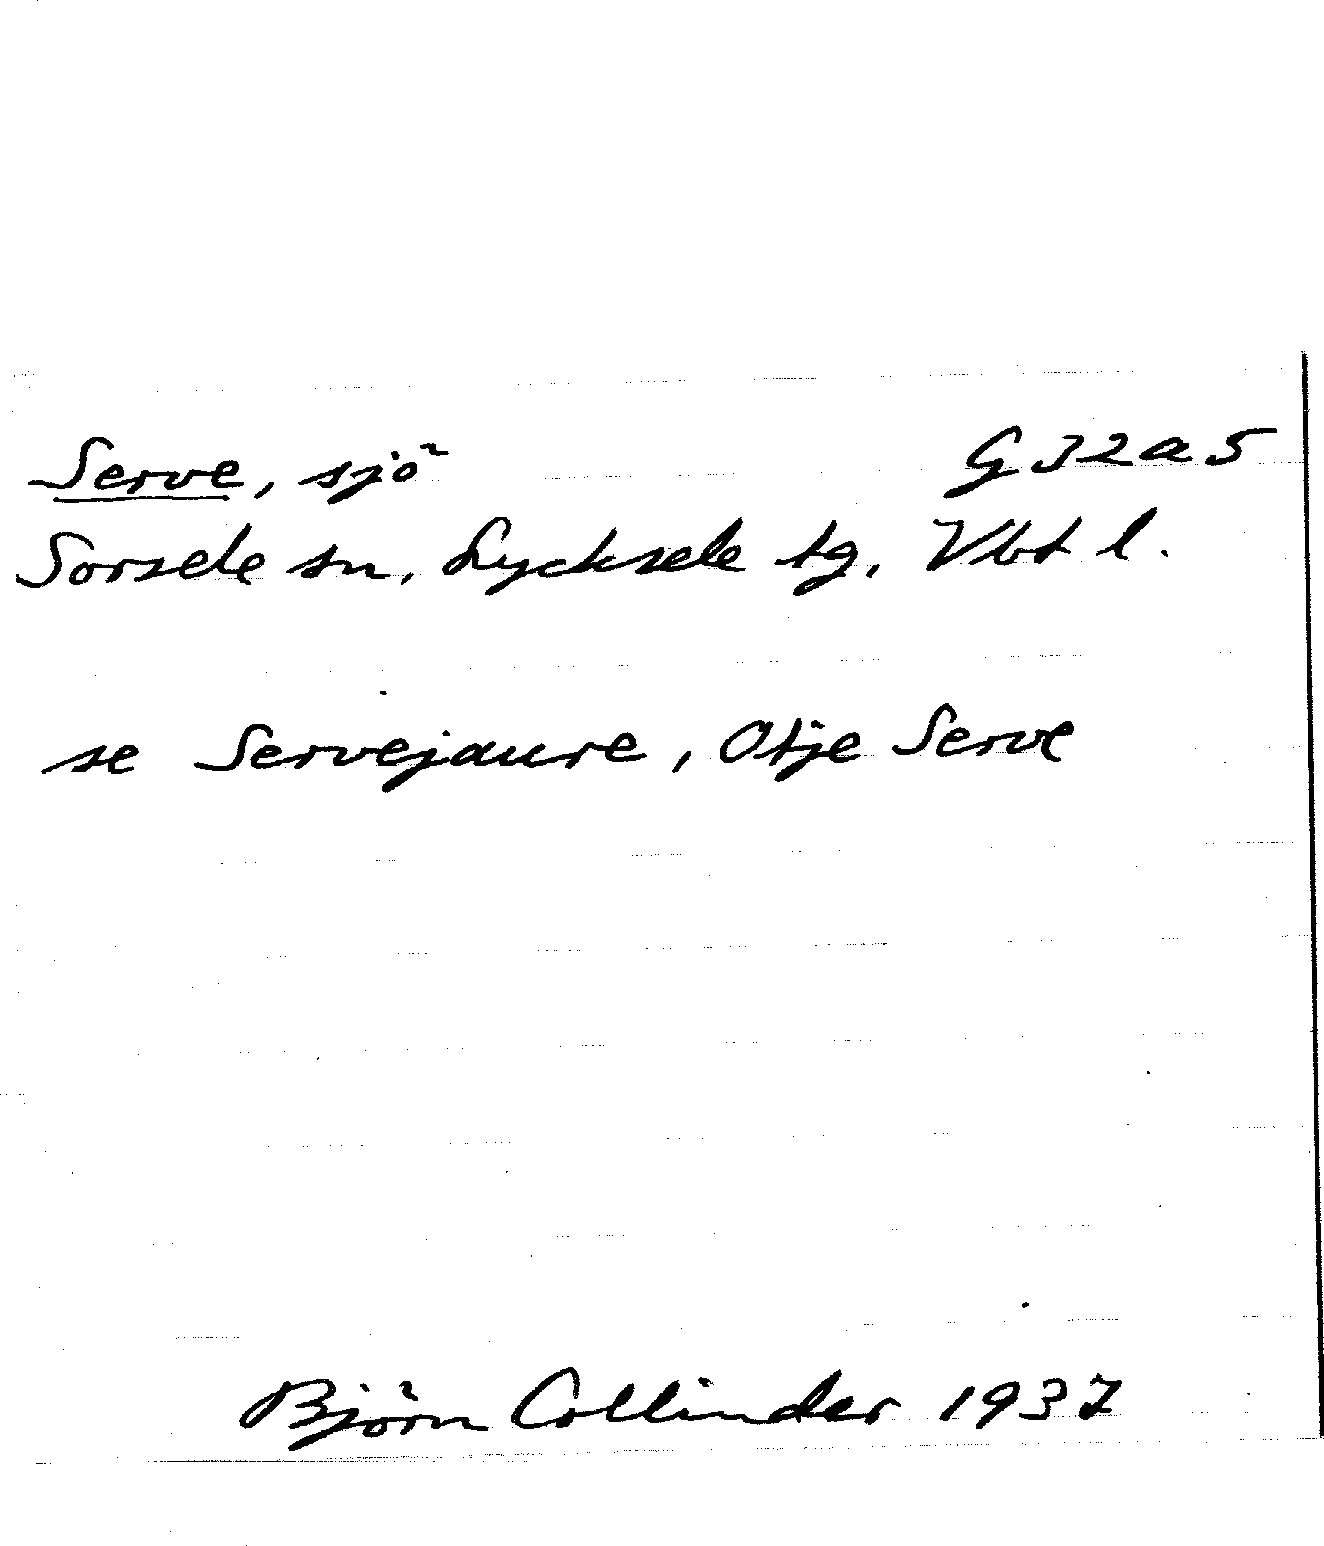 Serve, sjö G32a5
Sorsele sn, Lycksele tg, Vbt l.
se Servejaure, Otje Serve
Björn Collinder 1937